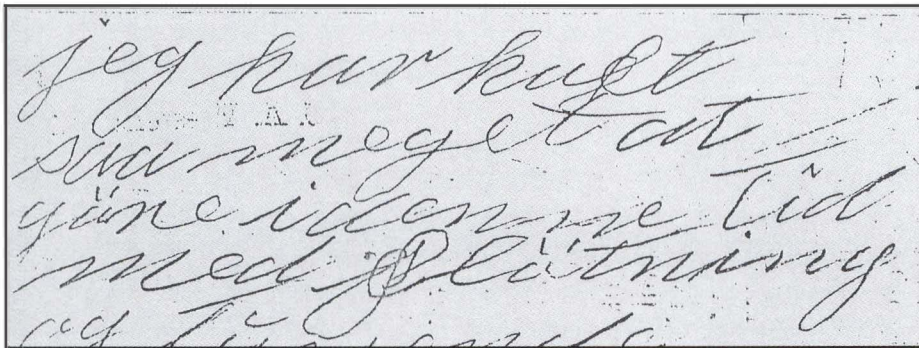 jeg har haft
saa meget at
göre i denne Tid
med Plätning
og